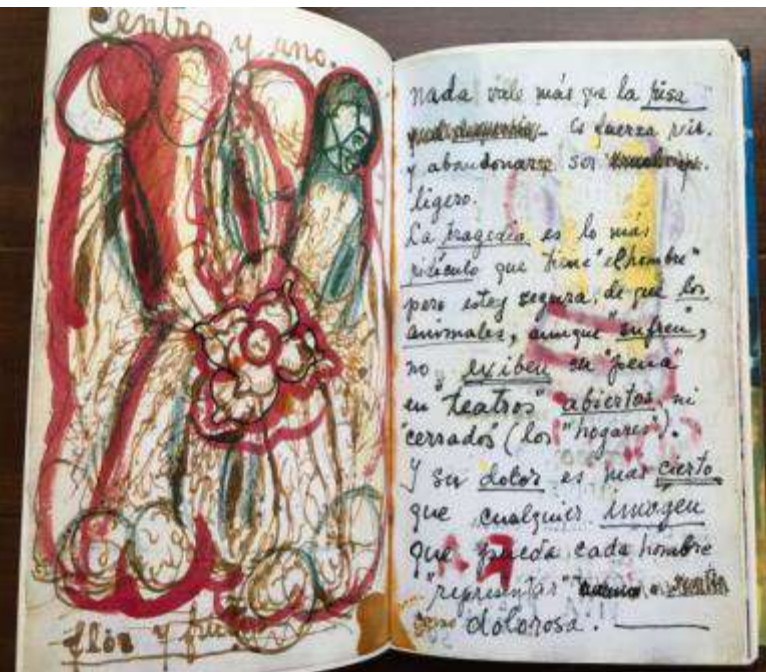 Centro y uno.
flor y fruto
nada vale más que la risa
Es fuerza reir
y abandonarse ser
ligero.
La tragedia es lo más
ridículo que tiene "el hombre"
pero estoy segura, de que los
animales, aunque "sufren",
no exiben su "pena"
en "teatros" abiertos, ni
"cerrados" (los "hogares").
Y su dolor es más cierto
que cualquier imagen
que pueda cada hombre
"representar"
como dolorosa.